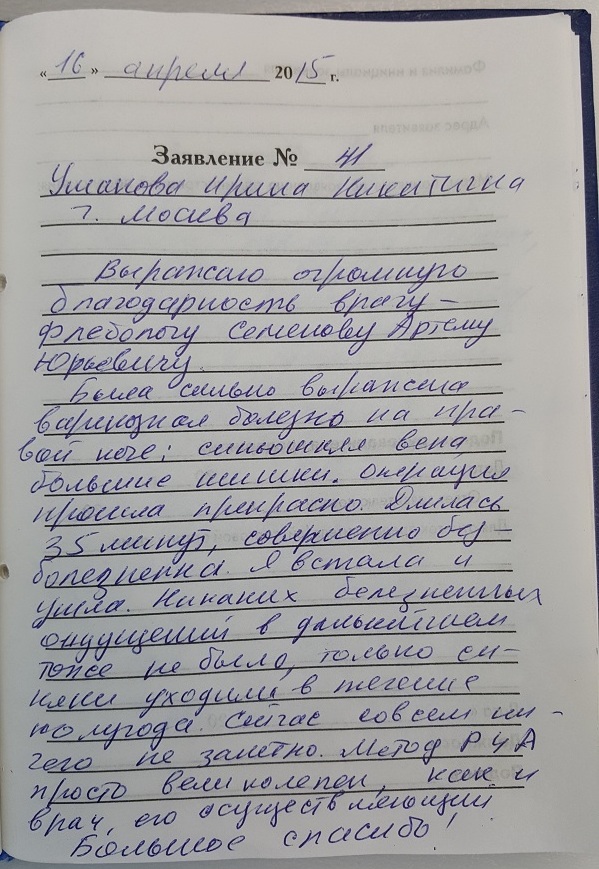 « 16 » апреля 2015 г.
Заявление № 41
Уманова Ирина Никитична
г. Москва
Выражаю огромную
благодарность врачу-
флебологу Семенову Артему
Юрьевичу.
Была сильно выражена
варикозная болезнь на пра-
вой ноге; сплошная вена
большие шишки. Операция
прошла прекрасно. Длилась
35 минут, совершенно без-
болезненна. Я встала и
ушла. Никаких болезненных
ощущений в дальнейшем
тоже не было, только си-
няки уходили в течение
полугода. Сейчас совсем ни-
чего не заметно. Метод РЧА
просто великолепен, как и
врач, его осуществляющий
Большое спасибо!